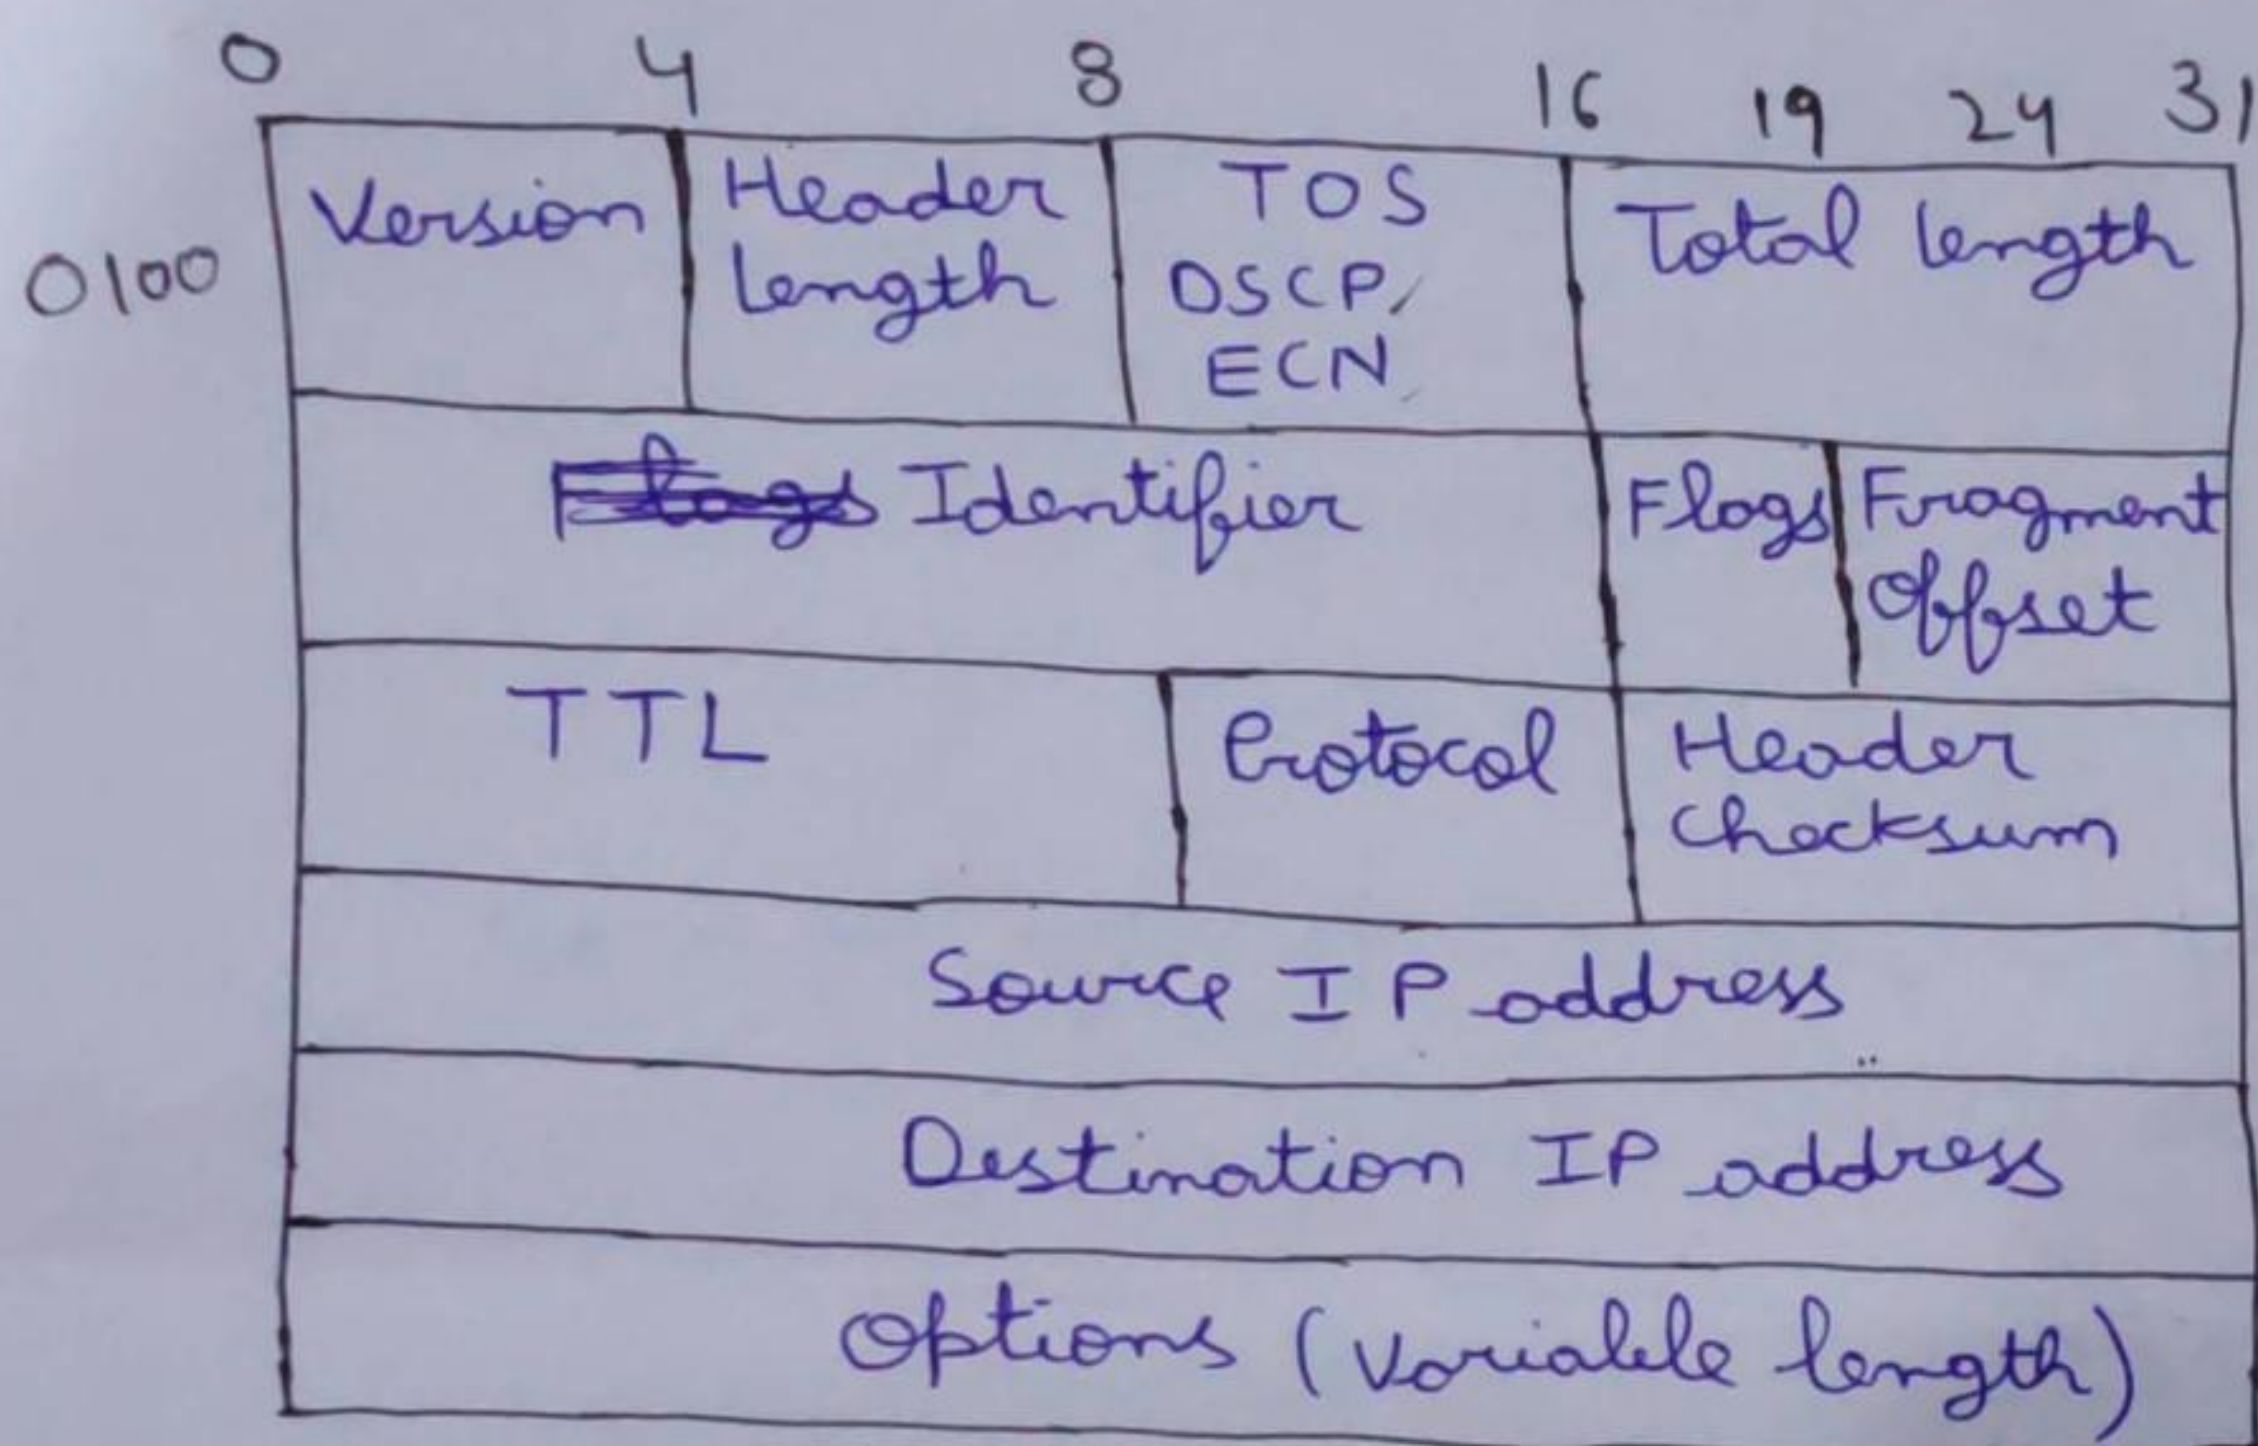 0 4 8 16 19 24 31
0100
Version
Header
length
TOS
DSCP,
ECN
Total length
Identifier
Flags
Fragment
offset
TTL
Protocol
Header
Checksum
Source IP address
Destination IP address
Options (Variable length)